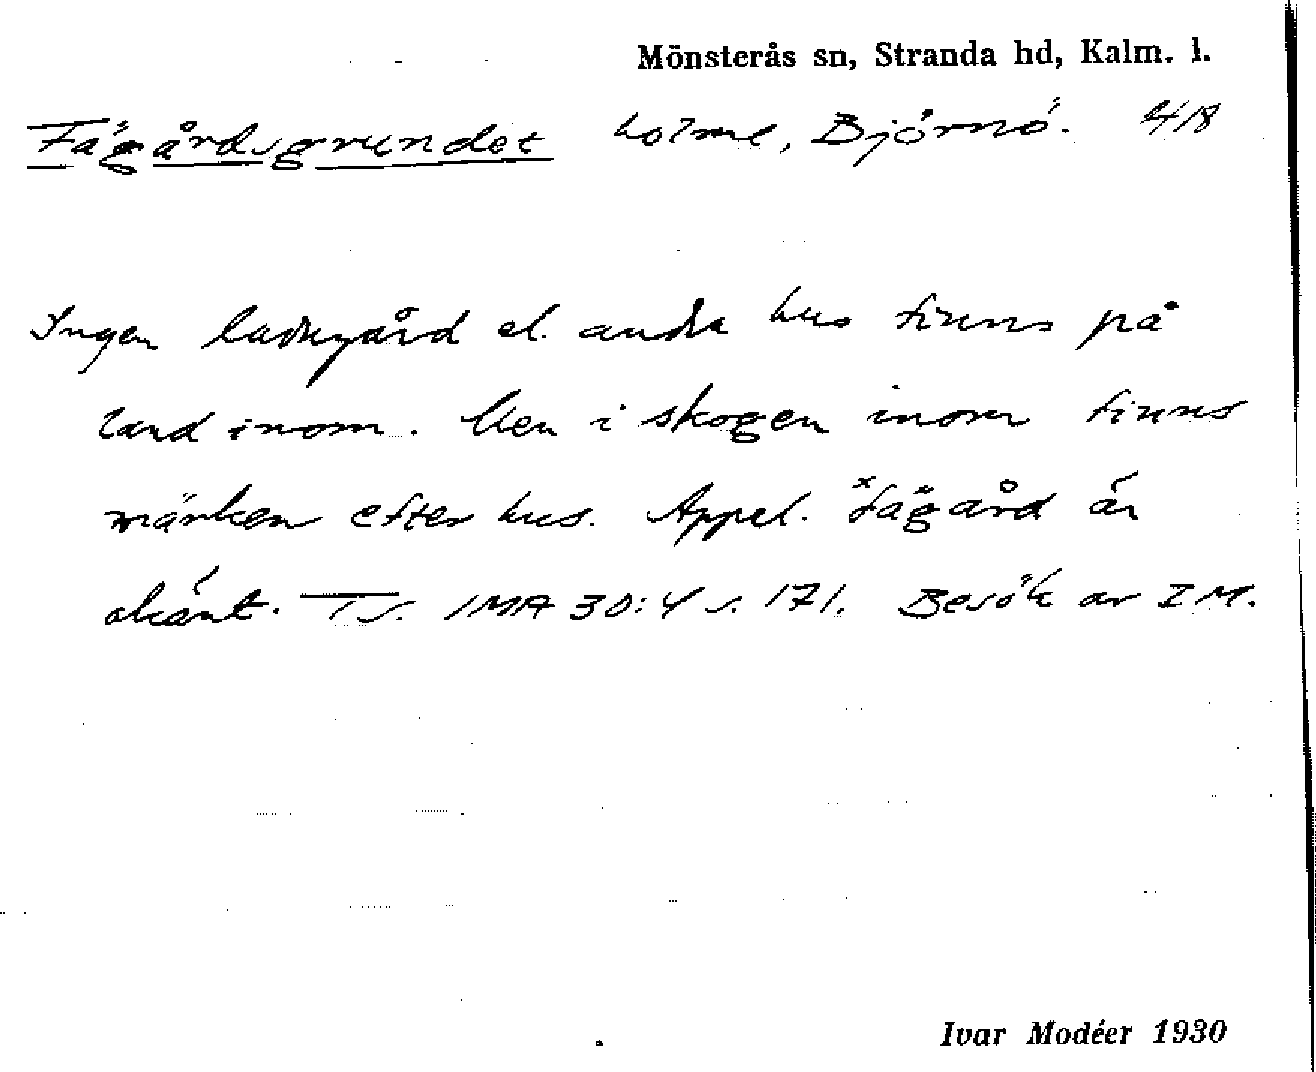 Mönsterås sn, Stranda hd, Kalm. l.
Fägårdsgrundet holme, Björnö. 418
Ingen ladugård el. andra hus finns på
land inom. Men i skogen inom finns
märken efter hus. Appel. *fägård är
okänt. TS. IMA 30:4 s. 171. Besök av IM.
Ivar Modéer 1930